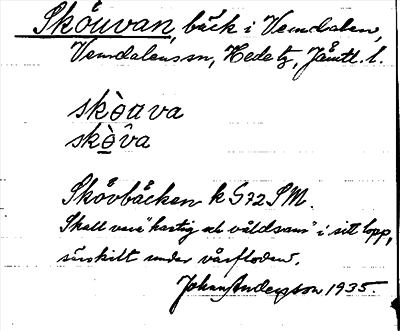 Skôuvan, bäck i Vemdalen,
Vemdalens sn, Hede tg, Jämtl. l.
skòuva
skò̲va
Skåvbäcken k G72 SM.
Skall vara "hastig och våldsam" i sitt lopp,
särskilt under vårfloden.
Johan Andersson 1935.